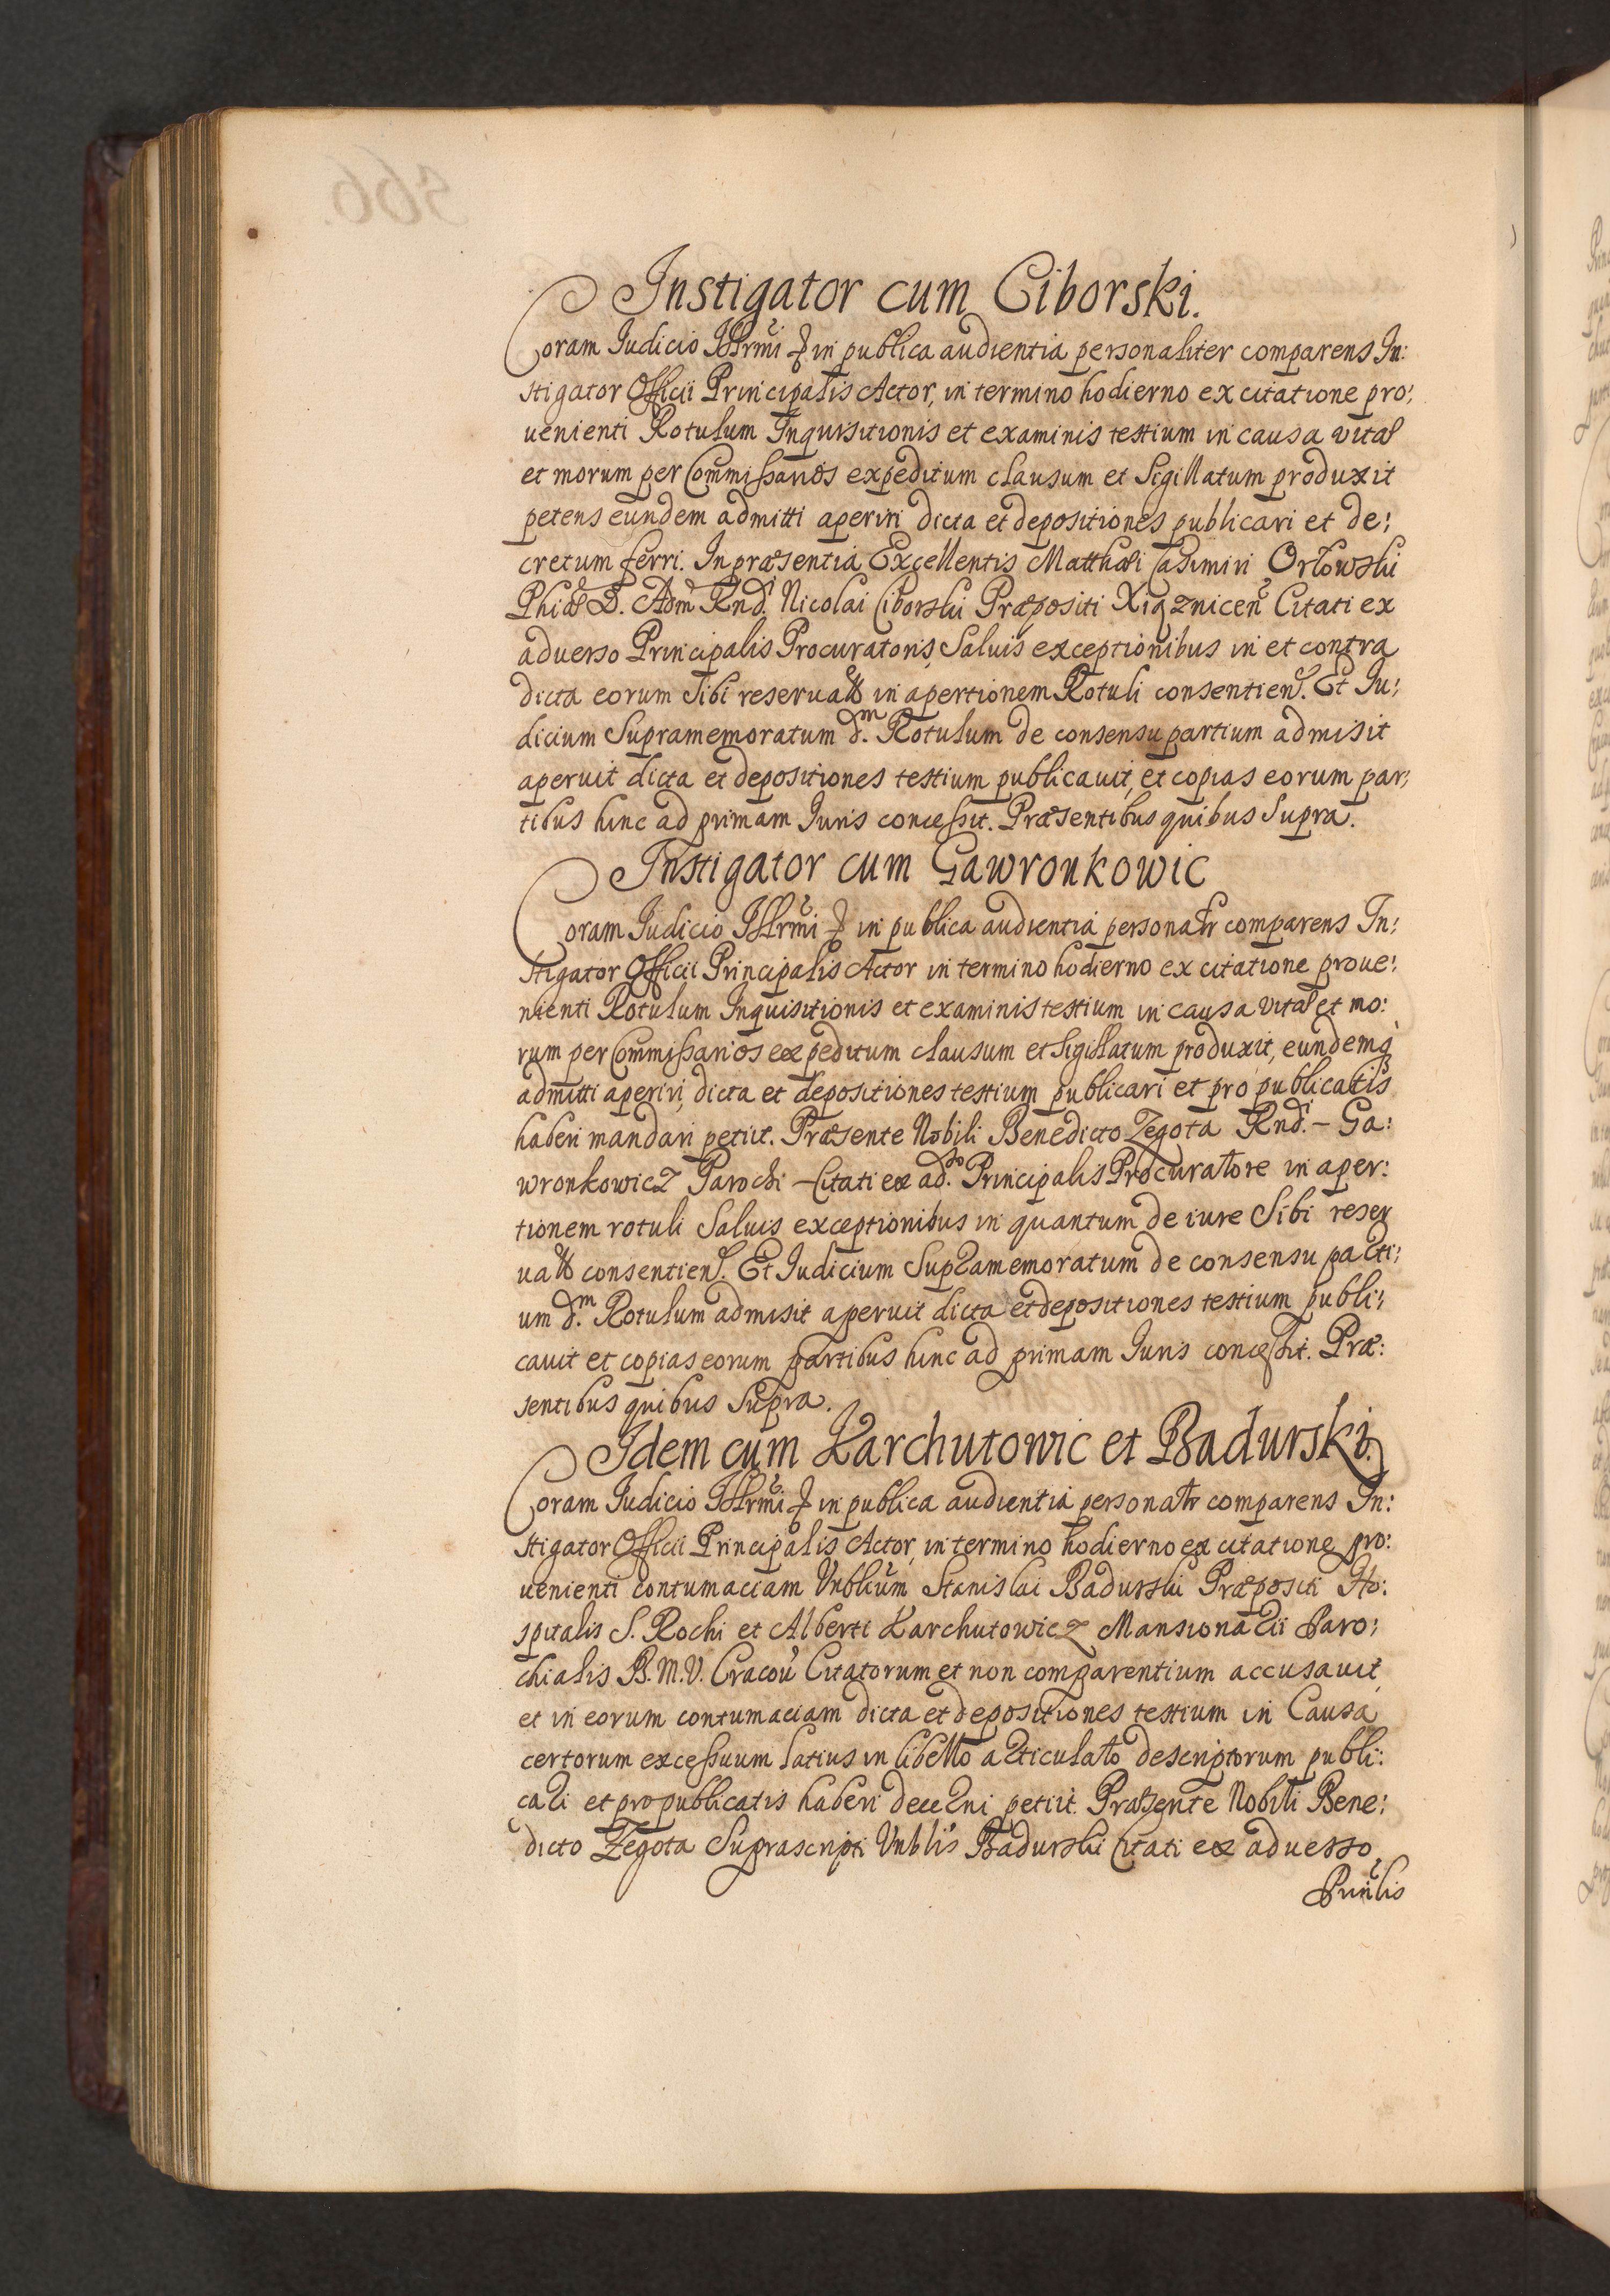 Instigator cum Ciborski.
Coram Iudicio Illrmi & in publica audientia personaliter comparens In:
stigator Officii Principalis Actor, in termino hodierno ex citatione pro:
uenienti Rotulum Inquisitionis et examinis testium in causa vitæ
et morum per Commissarios expeditum clausum et Sigillatum produxit
petens eundem admitti aperiri dicta et depositiones publicari et de:
cretum ferri. In præsentia Excellentis Matthæi Casimiri Orłowski
Phiæ D. Adm Rnd. Nicolai Ciborski Præpositi Xiąznicen Citati ex
aduerso Principalis Procuratoris, Saluis exceptionibus in et contra
dicta eorum Sibi reseruatis in apertionem Rotuli consentien. Et Iu:
dicium Supramemoratum d.m Rotulum de consensu partium admisit
aperuit dicta et depositiones testium publicauit, et copias eorum par:
tibus hinc ad primam Iuris concessit. Præsentibus quibus Supra.
Instigator cum Gawronkowic
Coram Iudicio Illrmi & in publica audientia personalr comparens In:
stigator Officii Principalis Actor in termino hodierno ex citatione proue:
nienti Rotulum Inquisitionis et examinis testium in causa vitæ et mo:
rum per Commissarios expeditum clausum et Sigillatum produxit, eundemq
admitti aperiri, dicta et depositiones testium publicari et pro publicatis
haberi mandari petiit. Præsente Nobili Benedicto Zegota Rnd. – Ga:
wronkowicz Parochi – Citati ex ad.so Principalis Procuratore in aper:
tionem rotuli Saluis exceptionibus in quantum de iure Sibi reser
uatis consentien. Et Iudicium Supramemoratum de consensu parti:
um d.m Rotulum admisit aperuit dicta et depositiones testium publi:
cauit et copias eorum partibus hinc ad primam Iuris concessit. Præ:
sentibus quibus Supra.
Idem cum Karchutowic et Badurski.
Coram Iudicio Illrmi & in publica audientia personalr comparens In:
stigator Officii Principalis Actor, in termino hodierno ex citatione pro:
uenienti contumaciam Vnblium Stanislai Badurski Præpositi Ho:
spitalis S. Rochi et Alberti Karchutowicz Mansionarii Paro:
chialis B. M. V. Cracou Citatorum et non comparentium accusauit,
et in eorum contumaciam dicta et depositiones testium in Causa
certorum excessuum latius in libello articulato descriptorum publi:
cari et pro publicatis haberi decerni petiit. Præsente Nobili Bene:
dicto Zegota Suprascripti Vnblis Badurski Citati ex aduerso
Prinlis